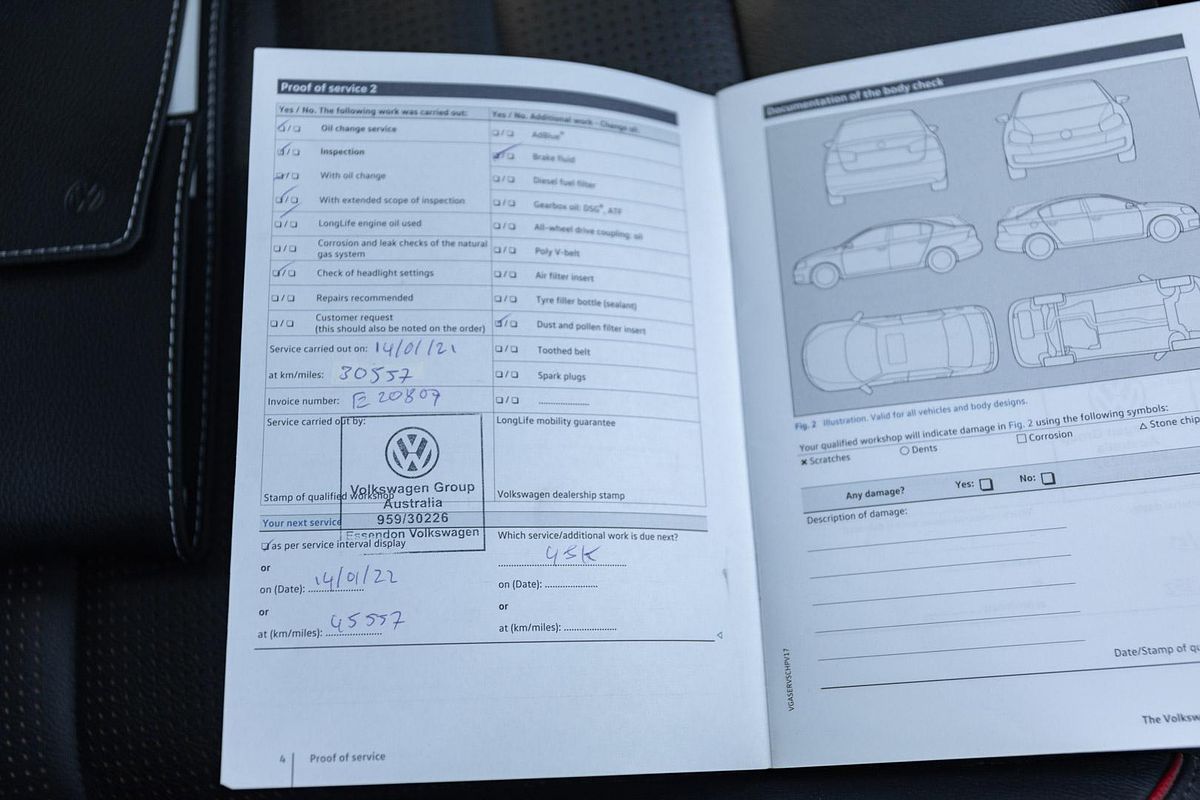 Proof of service 2
Yes / No. The following work was carried out:
☑/☐ Oil change service
☑/☐ Inspection
☑/☐ With oil change
☑/☐ With extended scope of inspection
☑/☐ LongLife engine oil used
☐/☐ Corrosion and leak checks of the natural
gas system
☑/☐ Check of headlight settings
☐/☐ Repairs recommended
☐/☐ Customer request
(this should also be noted on the order)
Service carried out on: 14/01/21
at km/miles: 30557
Invoice number: E 20807
Service carried out by:
Volkswagen Group
Australia
959/30226
Essendon Volkswagen
Stamp of qualified workshop
Yes / No. Additional work - Change oil:
☐/☐ AdBlue®
☑/☐ Brake fluid
☐/☐ Diesel fuel filter
☐/☐ Gearbox oil: DSG®, ATF
☐/☐ All-wheel drive coupling: oil
☐/☐ Poly V-belt
☐/☐ Air filter insert
☐/☐ Tyre filler bottle (sealant)
☑/☐ Dust and pollen filter insert
☐/☐ Toothed belt
☐/☐ Spark plugs
☐/☐ ....................
LongLife mobility guarantee
Volkswagen dealership stamp
Your next service
☑ as per service interval display
or
on (Date): 14/01/22
or
at (km/miles): 45557
Which service/additional work is due next?
45K
on (Date): ....................
or
at (km/miles): ....................
4 Proof of service
Documentation of the body check
Fig. 2 Illustration. Valid for all vehicles and body designs.
Your qualified workshop will indicate damage in Fig. 2 using the following symbols:
✖ Scratches ○ Dents □ Corrosion △ Stone chip
Any damage? Yes: ❑ No: ❑
Description of damage:
Date/Stamp of qu
VGASERVSCHPV17
The Volksw